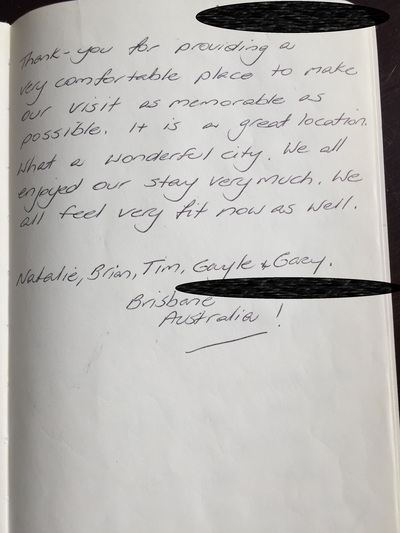 Thank-you for providing a
very comfortable place to make
our visit as memorable as
possible. It is a great location.
What a wonderful city. We all
enjoyed our stay very much. We
all feel very fit now as well.
Natalie, Brian, Tim, Gayle & Gary.
Brisbane
Australia !